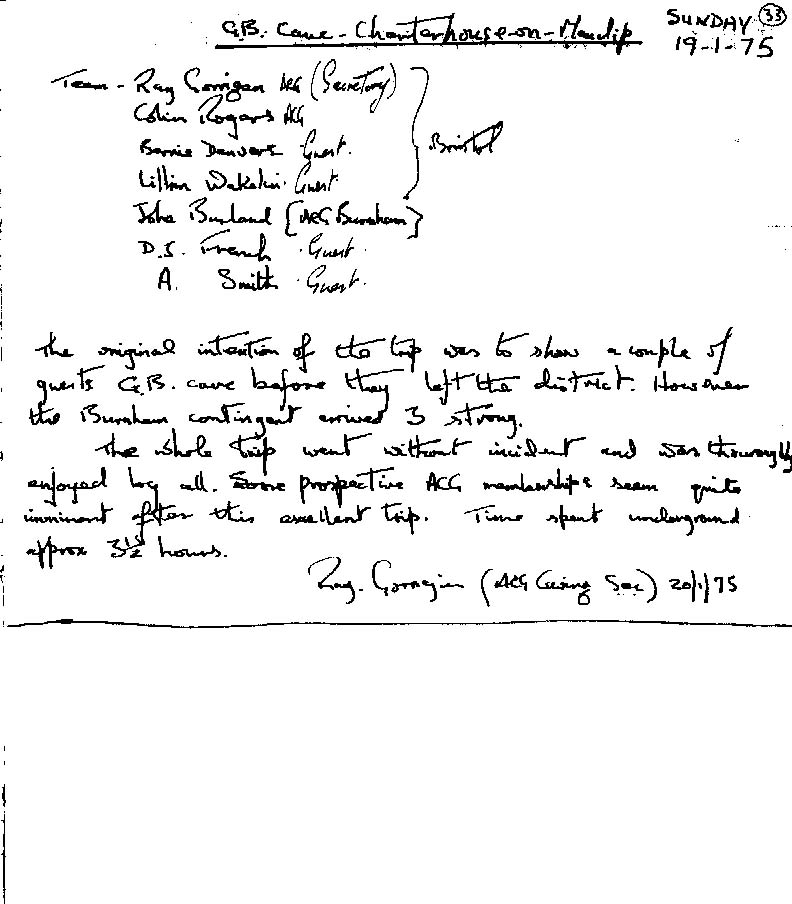 G.B. Cave - Charterhouse-on-Mendip
SUNDAY 33
19-1-75
Team - Ray Corrigan ACG (Secretary)
Colin Rogers ACG
Bernie Danvers Guest.
Lillian Wakelin. Guest
Bristol
John Burland [ACG Burnham]
D.J. French Guest.
A. Smith Guest.
The original intention of the trip was to show a couple of
guests G.B. cave before they left the district. However
the Burnham contingent arrived 3 strong.
The whole trip went without incident and was thouroughly
enjoyed by all. Some prospective ACG memberships seem quite
imminent after this excellent trip. Time spent underground
approx 3½ hours.
Ray. Corrigan (ACG Caving Sec) 20/1/75